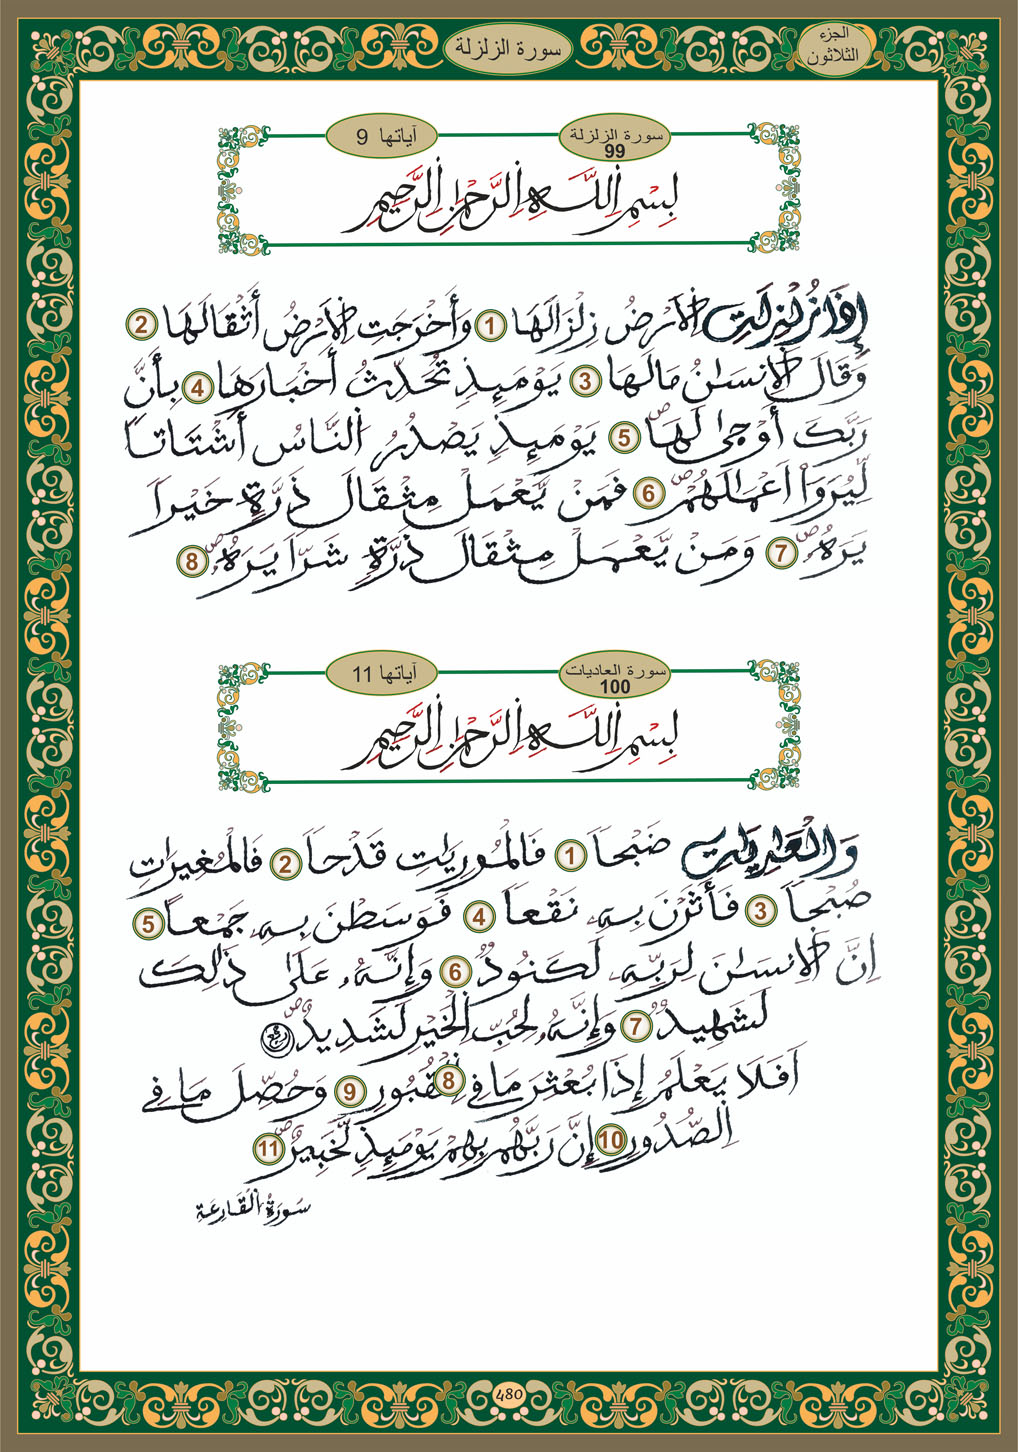 الجزء
الثلاثون
سورة الزلزلة
سورة الزلزلة
99
آياتها 9
بِسْمِ اللَّهِ الرَّحْمٰنِ الرَّحِيمِ
إِذَا زُلْزِلَتِ الْأَرْضُ زِلْزَالَهَا 1 وَأَخْرَجَتِ الْأَرْضُ أَثْقَالَهَا 2
وَقَالَ الْإِنسَٰنُ مَا لَهَا 3 يَوْمَئِذٍ تُحَدِّثُ أَخْبَارَهَا 4 بِأَنَّ
رَبَّكَ أَوْحَىٰ لَهَا ص 5 يَوْمَئِذٍ يَصْدُرُ النَّاسُ أَشْتَاتًا
لِّيُرَوْا أَعْمَٰلَهُمْ ص 6 فَمَنْ يَّعْمَلْ مِثْقَالَ ذَرَّةٍ خَيْرًا
يَرَهُ ص 7 وَمَنْ يَّعْمَلْ مِثْقَالَ ذَرَّةٍ شَرًّا يَرَهُ ص 8
سورة العاديات
100
آياتها 11
بِسْمِ اللَّهِ الرَّحْمٰنِ الرَّحِيمِ
وَالْعَٰدِيَٰتِ ضَبْحًا 1 فَالْمُورِيَٰتِ قَدْحًا 2 فَالْمُغِيرَٰتِ
صُبْحًا 3 فَأَثَرْنَ بِهِ نَقْعًا 4 فَوَسَطْنَ بِهِ جَمْعًا 5
إِنَّ الْإِنسَٰنَ لِرَبِّهِ لَكَنُودٌ 6 وَإِنَّهُ عَلَىٰ ذَٰلِكَ
لَشَهِيدٌ 7 وَإِنَّهُ لِحُبِّ الْخَيْرِ لَشَدِيدٌ ص
أَفَلَا يَعْلَمُ إِذَا بُعْثِرَ مَا فِي 8 الْقُبُورِ 9 وَحُصِّلَ مَا فِي
الصُّدُورِ 10 إِنَّ رَبَّهُم بِهِمْ يَوْمَئِذٍ لَّخَبِيرٌ ص 11
سُورَةُ الْقَارِعَةِ
480